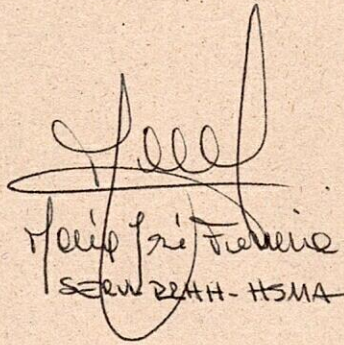 Maria José Ferreira
SERV. RRHH - HSMA